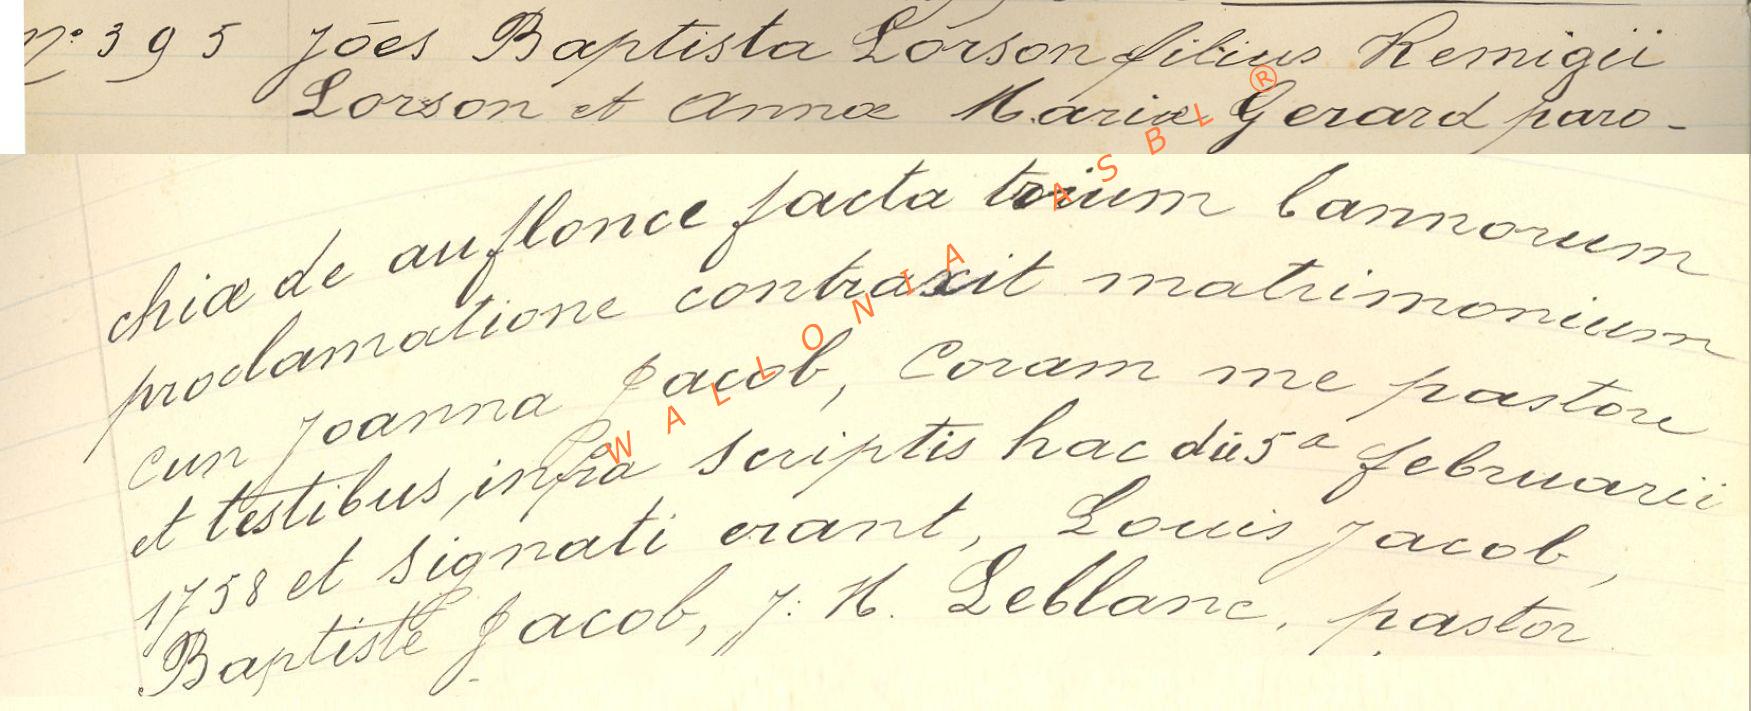 n° 395 Jōes Baptista Lorson filius Remigii
Lorson et Annæ Mariæ Gerard paro-
chiæ de auflonce facta trium bannorum
proclamatione contraxit matrimonium
cun Joanna Jacob, Coram me pastore
et testibus, infra scriptis hac die 5a februarii
1758 et signati erant, Louis Jacob,
Baptiste Jacob, J: H. Leblanc, pastor
WALLONIA ASBL ®